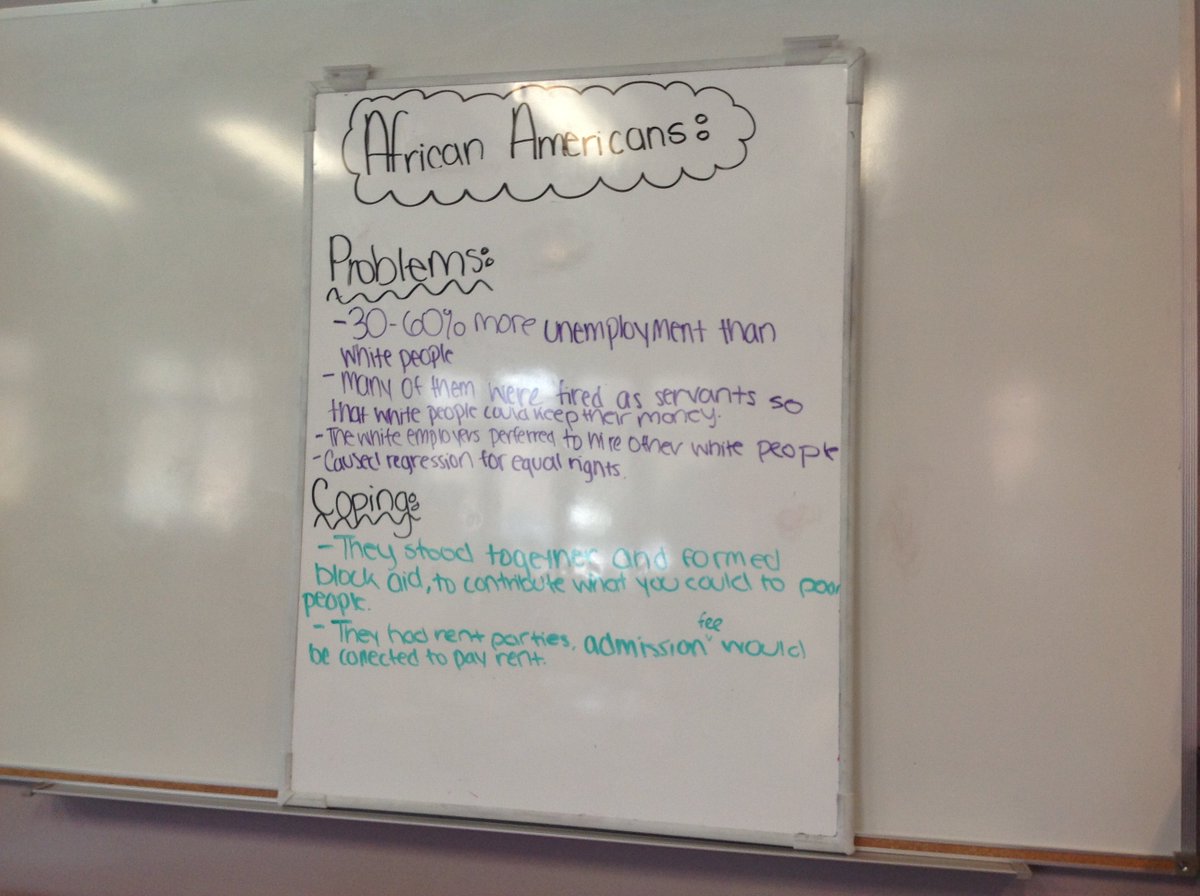 African Americans:
Problems:
- 30-60% more unemployment than
white people
- many of them were fired as servants so
that white people could keep their money.
- The white employers perferred to hire other white people
- Caused regression for equal rights.
Coping:
- They stood together and formed
block aid, to contribute what you could to poor
people.
fee
- They had rent parties, admission ˅ would
be conected to pay rent.